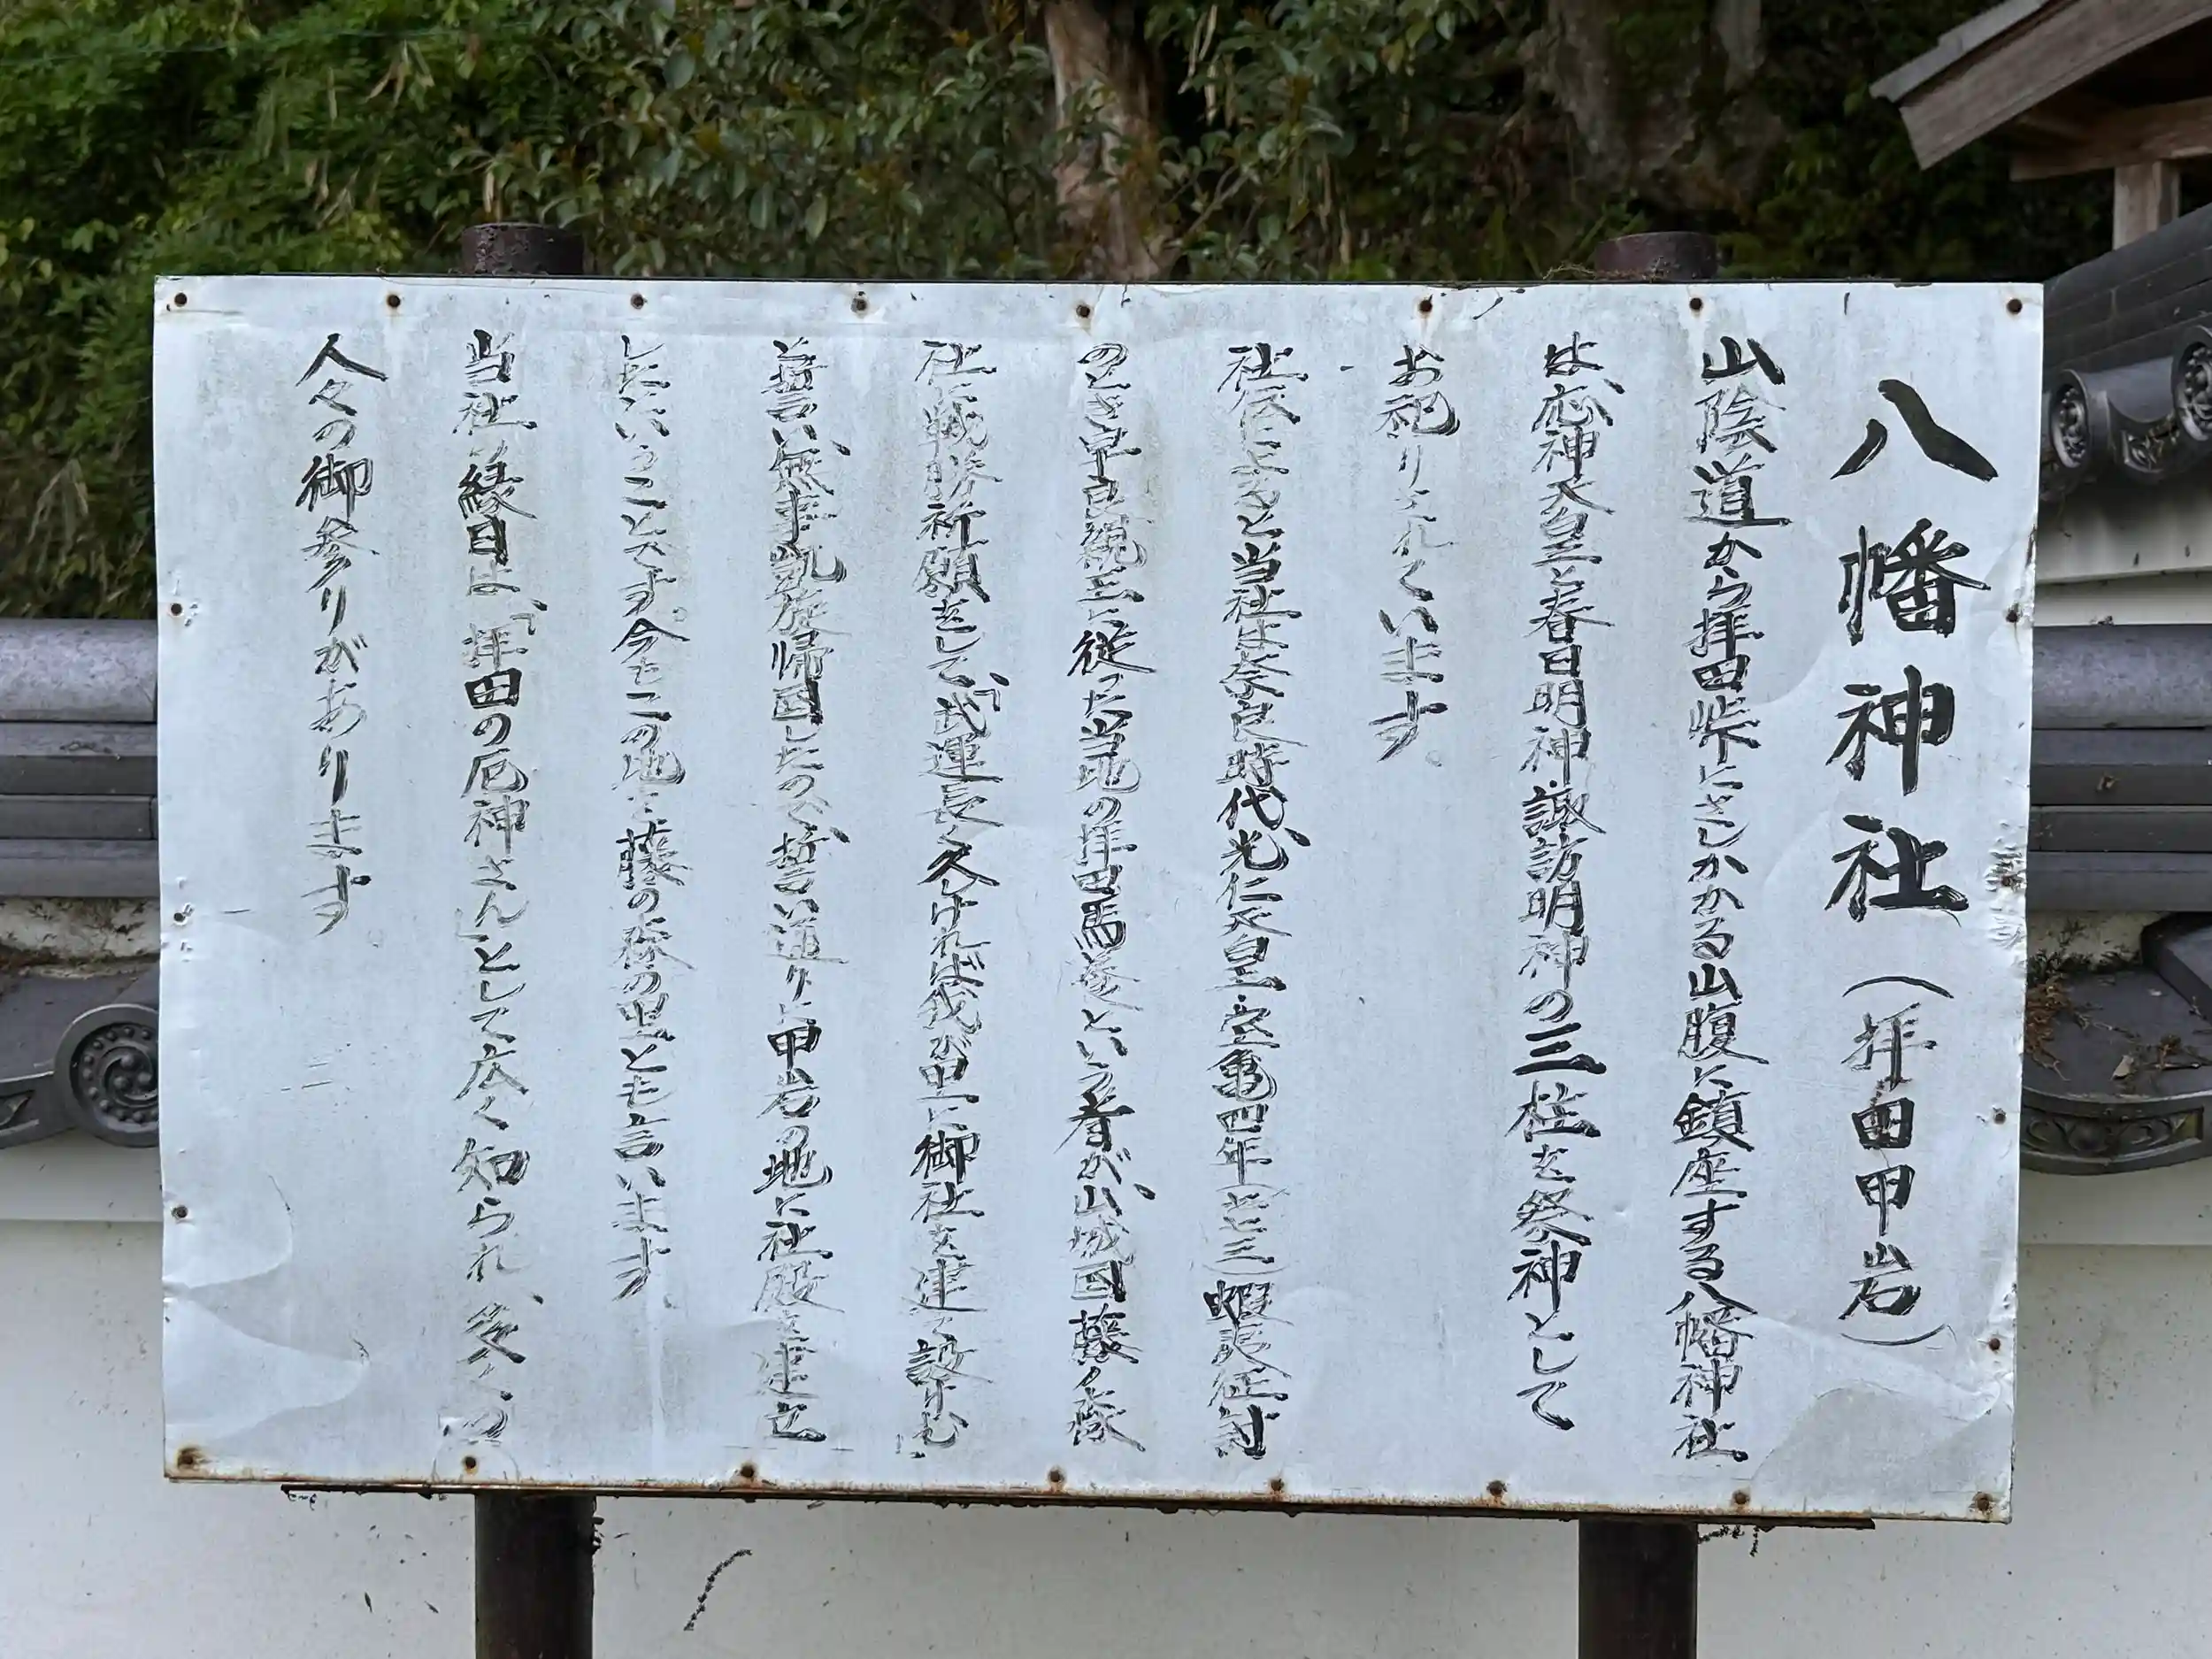 八幡神社（拝田甲岩）
山陰道から拝田峠にさしかかる山腹に鎮座する八幡神社
は、応神天皇と春日明神・諏訪明神の三柱を祭神として
お祀りされています。
社伝によると当社は奈良時代、光仁天皇・宝亀四年（七七三）蝦夷征討
のとき早良親王に従った当地の拝田馬造という者が、山城国藤ノ森
社に戦勝祈願をして、「武運長く久しければ我が里に御社を建て設けむ」
と誓い、無事凱旋帰国したので、誓い通りに甲岩の地に社殿を建立
したということです。今もこの地を藤の森の里とも言います。
当社の縁日は、「拝田の厄神さん」として広く知られ、多くの
人々の御参りがあります。